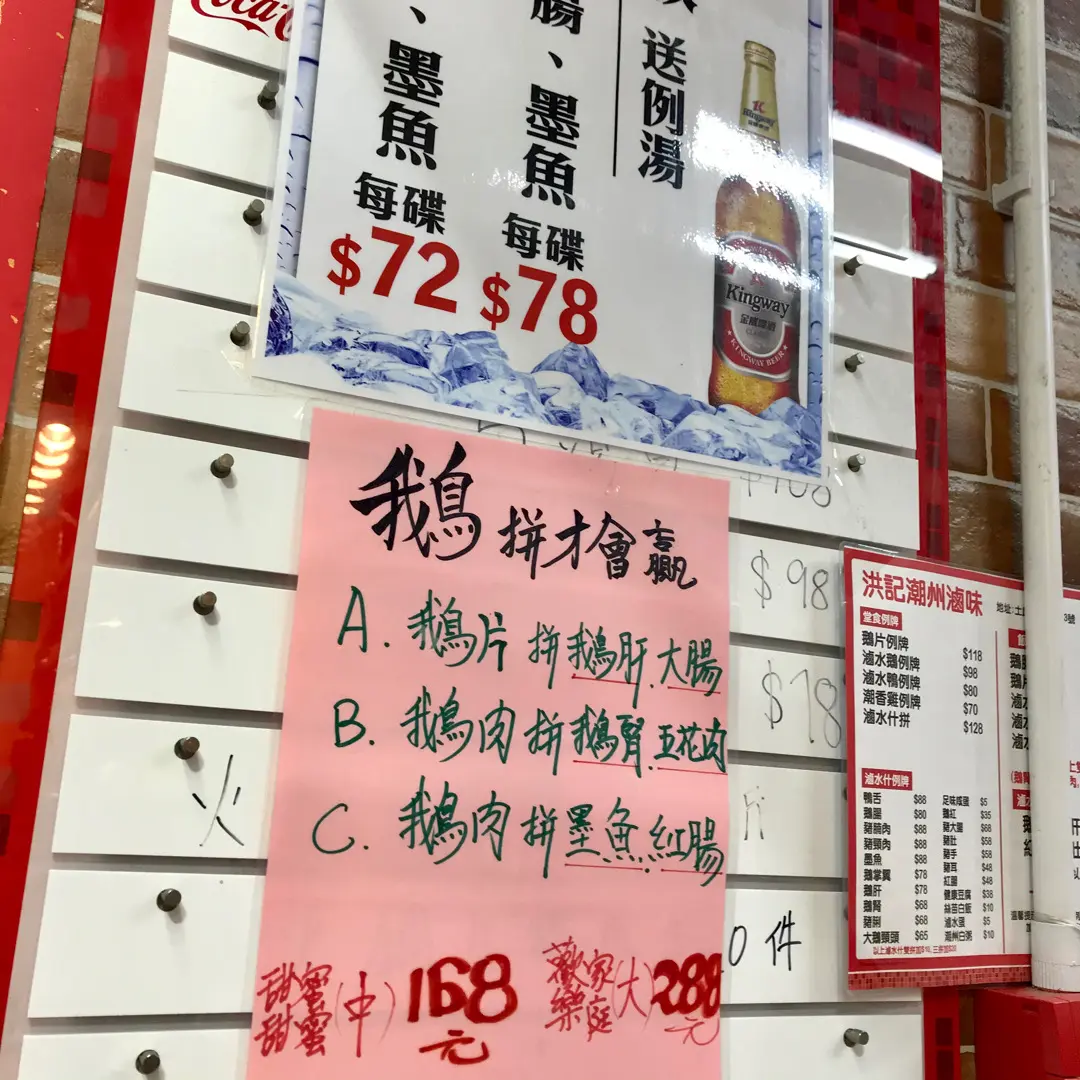 Coca
、墨魚
每碟
$72
腸、墨魚
每碟
$78
送例湯
Kingway
Kingway
金威啤酒
KINGWAY BEER
鵝拼才會贏
A. 鵝片拼鵝肝.大腸
B. 鵝肉拼鵝腎.五花肉
C. 鵝肉拼墨魚.紅腸
甜蜜
甜蜜
(中) 168元
歡家
樂庭
(大) 288元
火
$108
$98
$78
0件
洪記潮州滷味
地址:土
3號
堂食例牌
鵝片例牌 $118
滷水鵝例牌 $98
滷水鴨例牌 $80
潮香雞例牌 $70
滷水什拼 $128
滷水什例牌
鴨舌 $88
鵝腸 $80
豬腩肉 $88
豬頸肉 $88
墨魚 $88
鵝掌翼 $78
鵝肝 $78
鵝腎 $68
豬脷 $68
大鵝頸頭 $65
足味咸蛋 $5
鵝紅 $35
豬大腸 $68
豬肚 $58
豬手 $58
豬耳 $48
紅腸 $48
健康豆腐 $38
絲苗白飯 $10
滷水蛋 $5
潮州白粥 $10
以上滷水什雙拼加$10, 三拼加$20